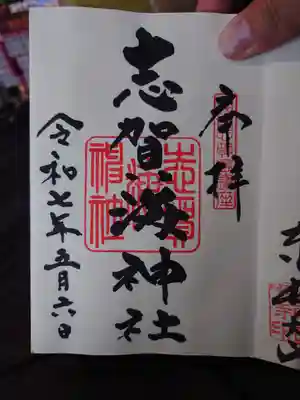 奉拝
志賀海神社
令和七年五月六日
志賀海神社